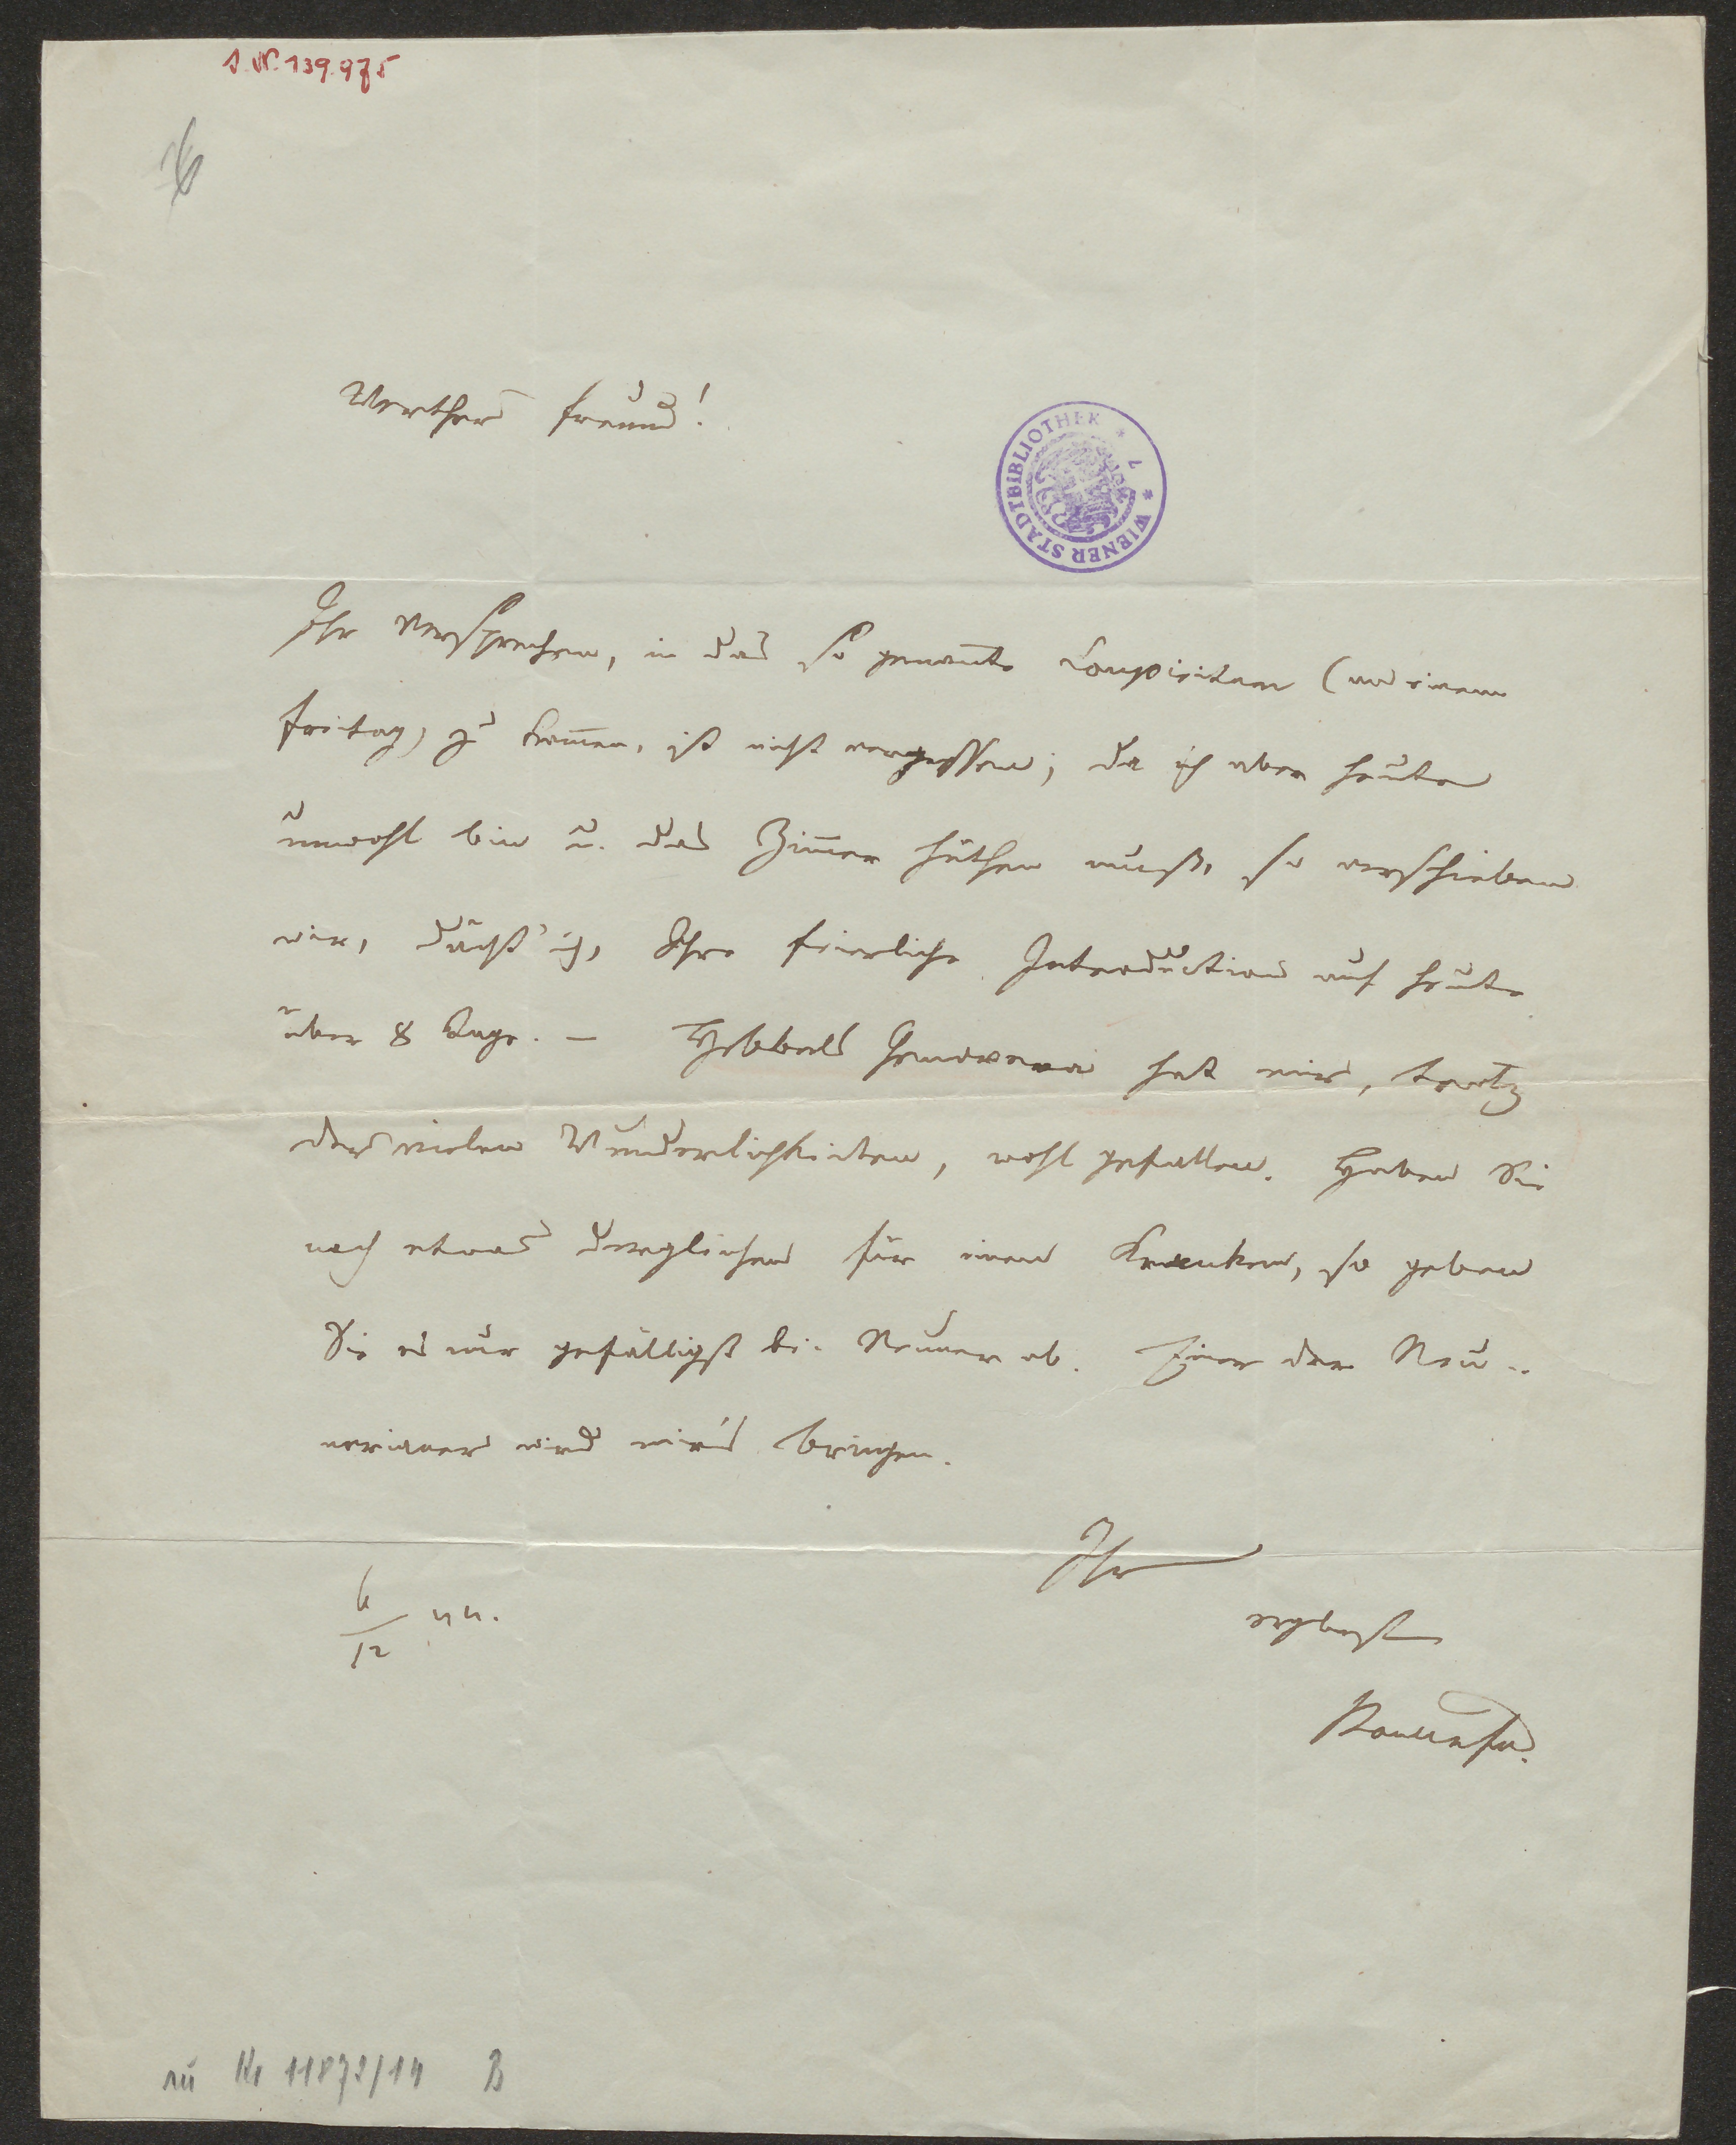 I. N. 139.975
Werther Freund!
WIENER STADTBIBLIOTHEK * 7 *
Ihr Versprechen, in das so genan̄te (an einem
Freitag) zu kom̄en, ist nicht vergessen; da ich aber heute
unwohl bin u. das Zim̄er hüthen muß, so verschieben
wir, dächt' ich, Ihre feierliche Introduction auf heute
über 8 Tage. — Hebbels Genoveva hat mir, trotz
der vielen Wunderlichkeiten, wohl gefallen. Haben Sie
noch etwas dergleichen für einen Kranken, so geben
Sie es nur gefälligst bei Neuner ab. Einer der Neu-
nerianer wird mir's bringen.
Ihr
ergebenst
6/12 44.
Bauernfd.
11872/14 B